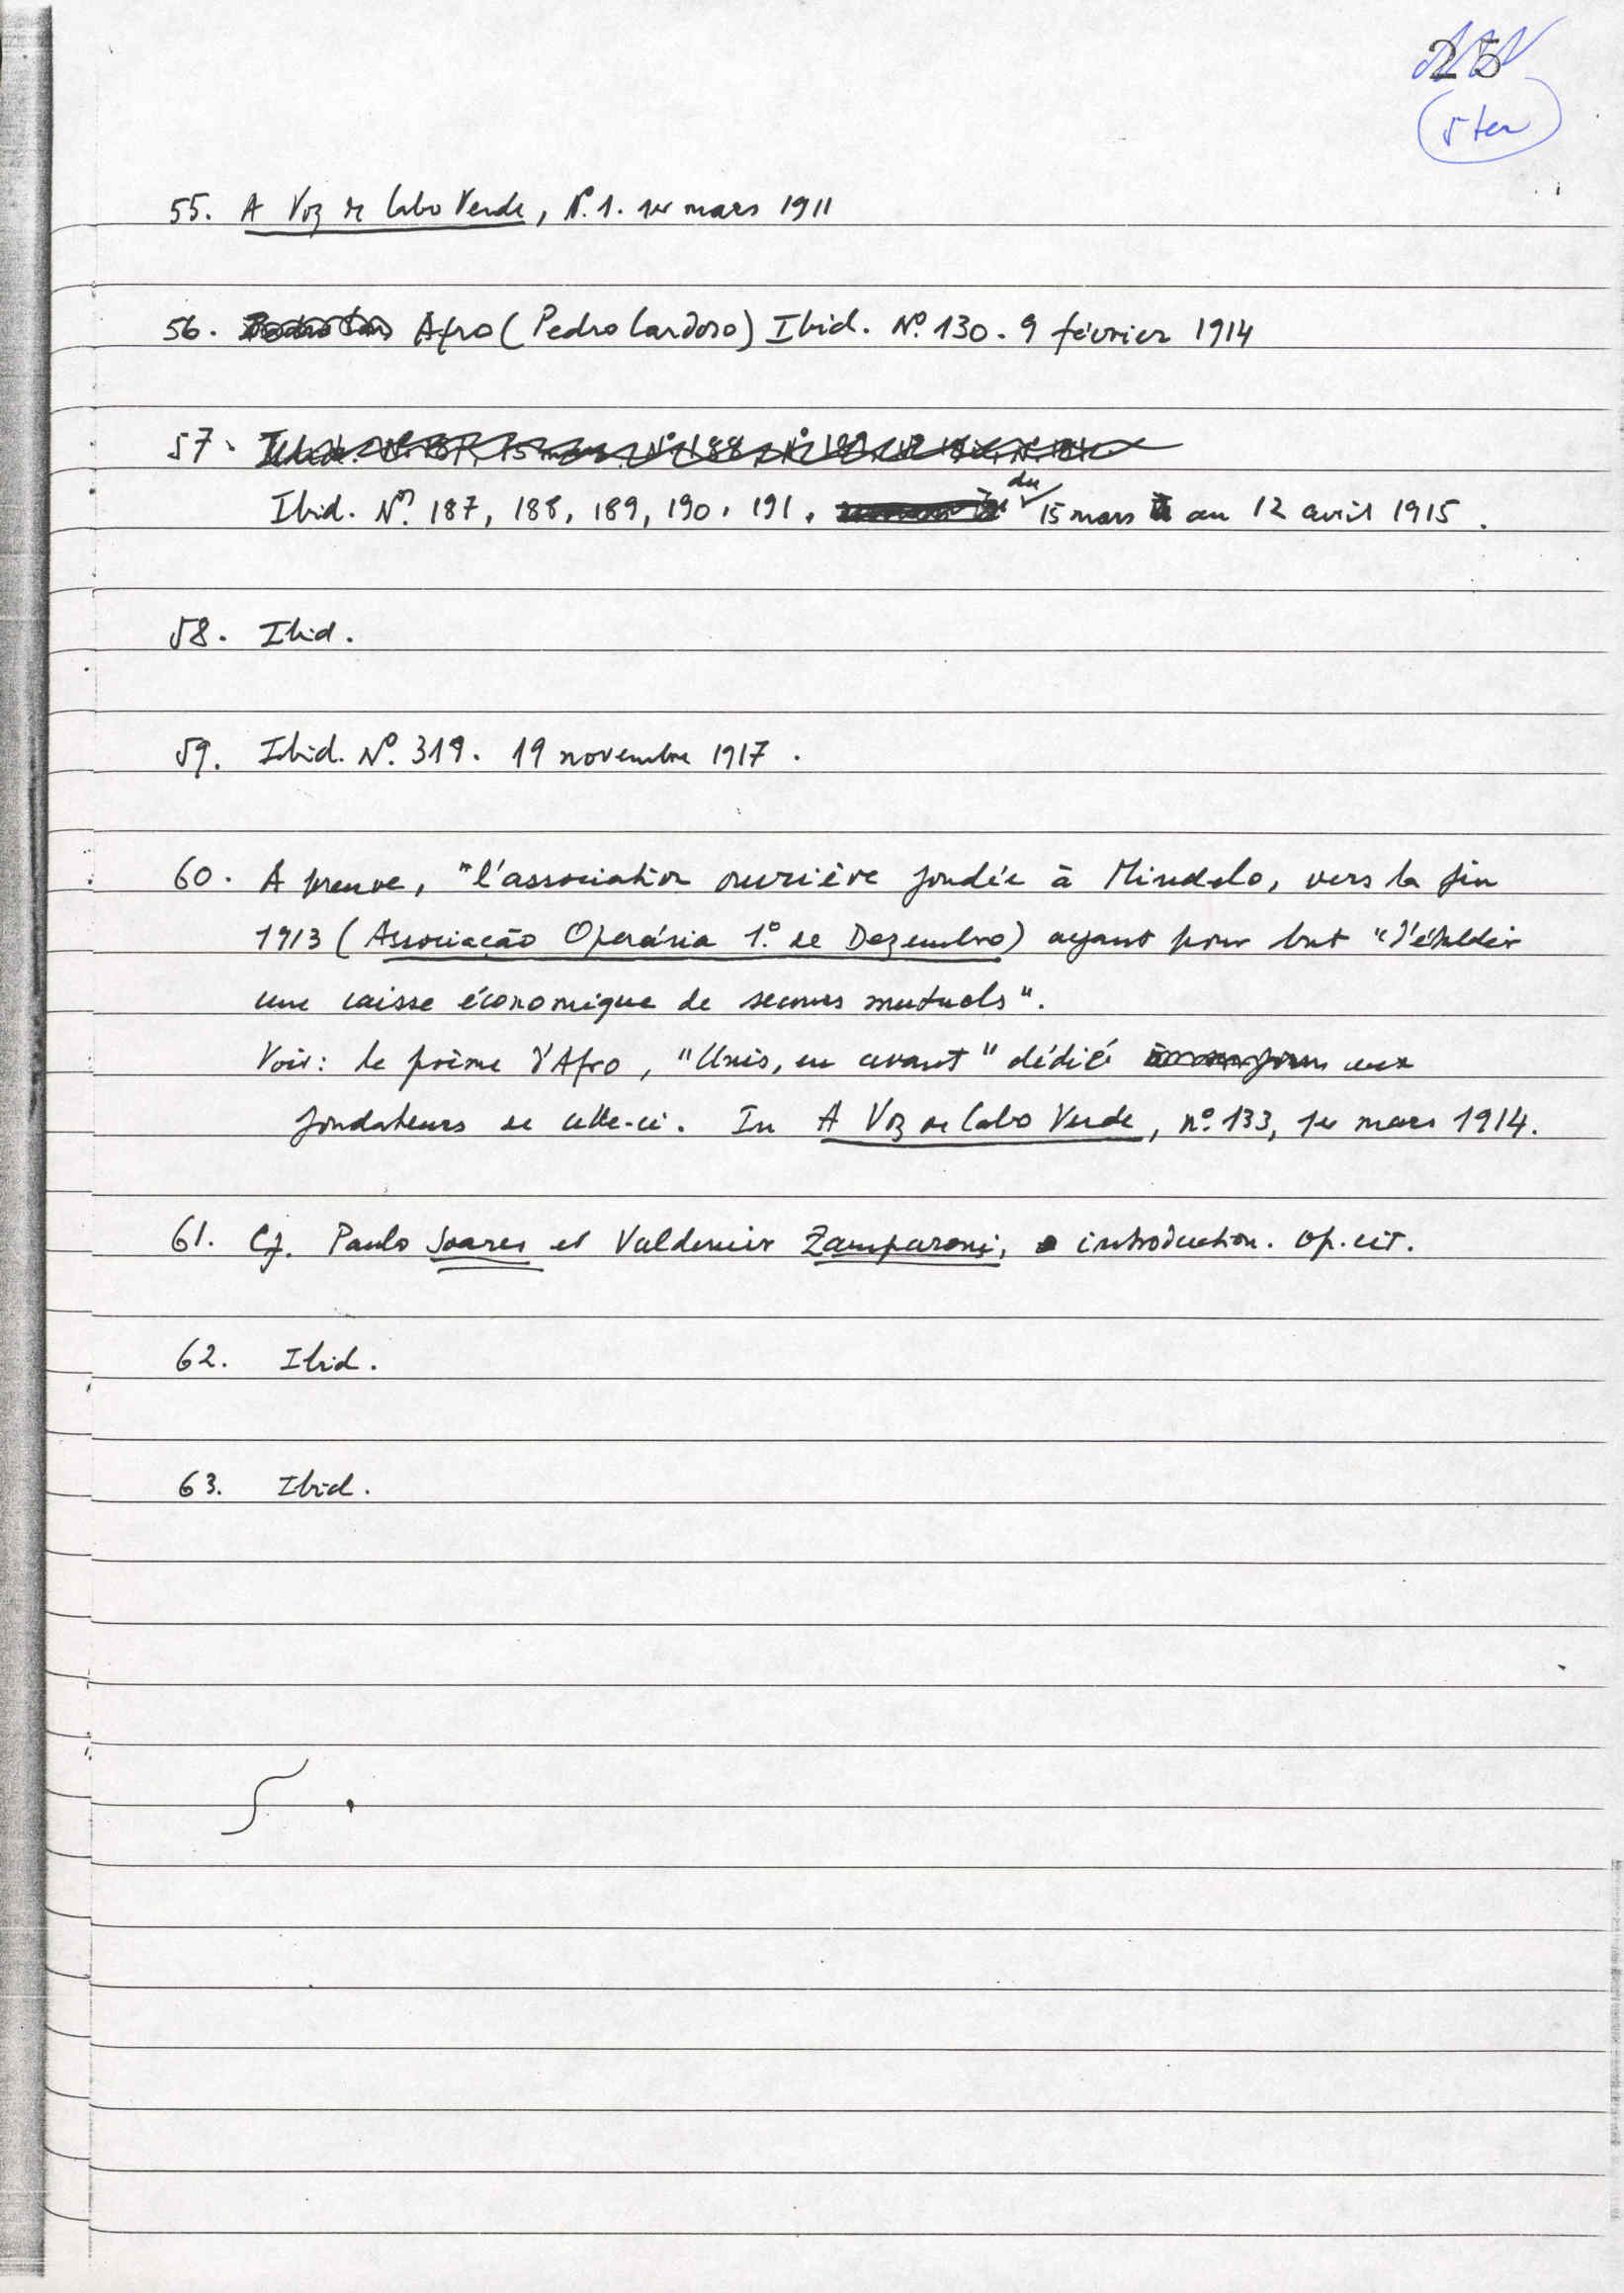 25
5 ter
55. A Voz de Cabo Verde, Nº. 1. 1er mars 1911
56. Afro (Pedro Cardoso) Ibid. Nº. 130. 9 février 1914
57.
Ibid. Nº. 187, 188, 189, 190, 191, du 15 mars au 12 avril 1915.
58. Ibid.
59. Ibid. Nº. 319. 19 novembre 1917.
60. A preuve, "l'association ouvrière fondée à Mindelo, vers la fin
1913 (Associação Operária 1.º de Dezembro) ayant pour but "d'établir
une caisse économique de secours mutuels".
Voir: le poème d'Afro, "Unis, en avant" dédié aux
fondateurs de celle-ci. In A Voz de Cabo Verde, nº. 133, 1er mars 1914.
61. Cf. Paulo Soares et Valdemir Zamparoni, introduction. op. cit.
62. Ibid.
63. Ibid.